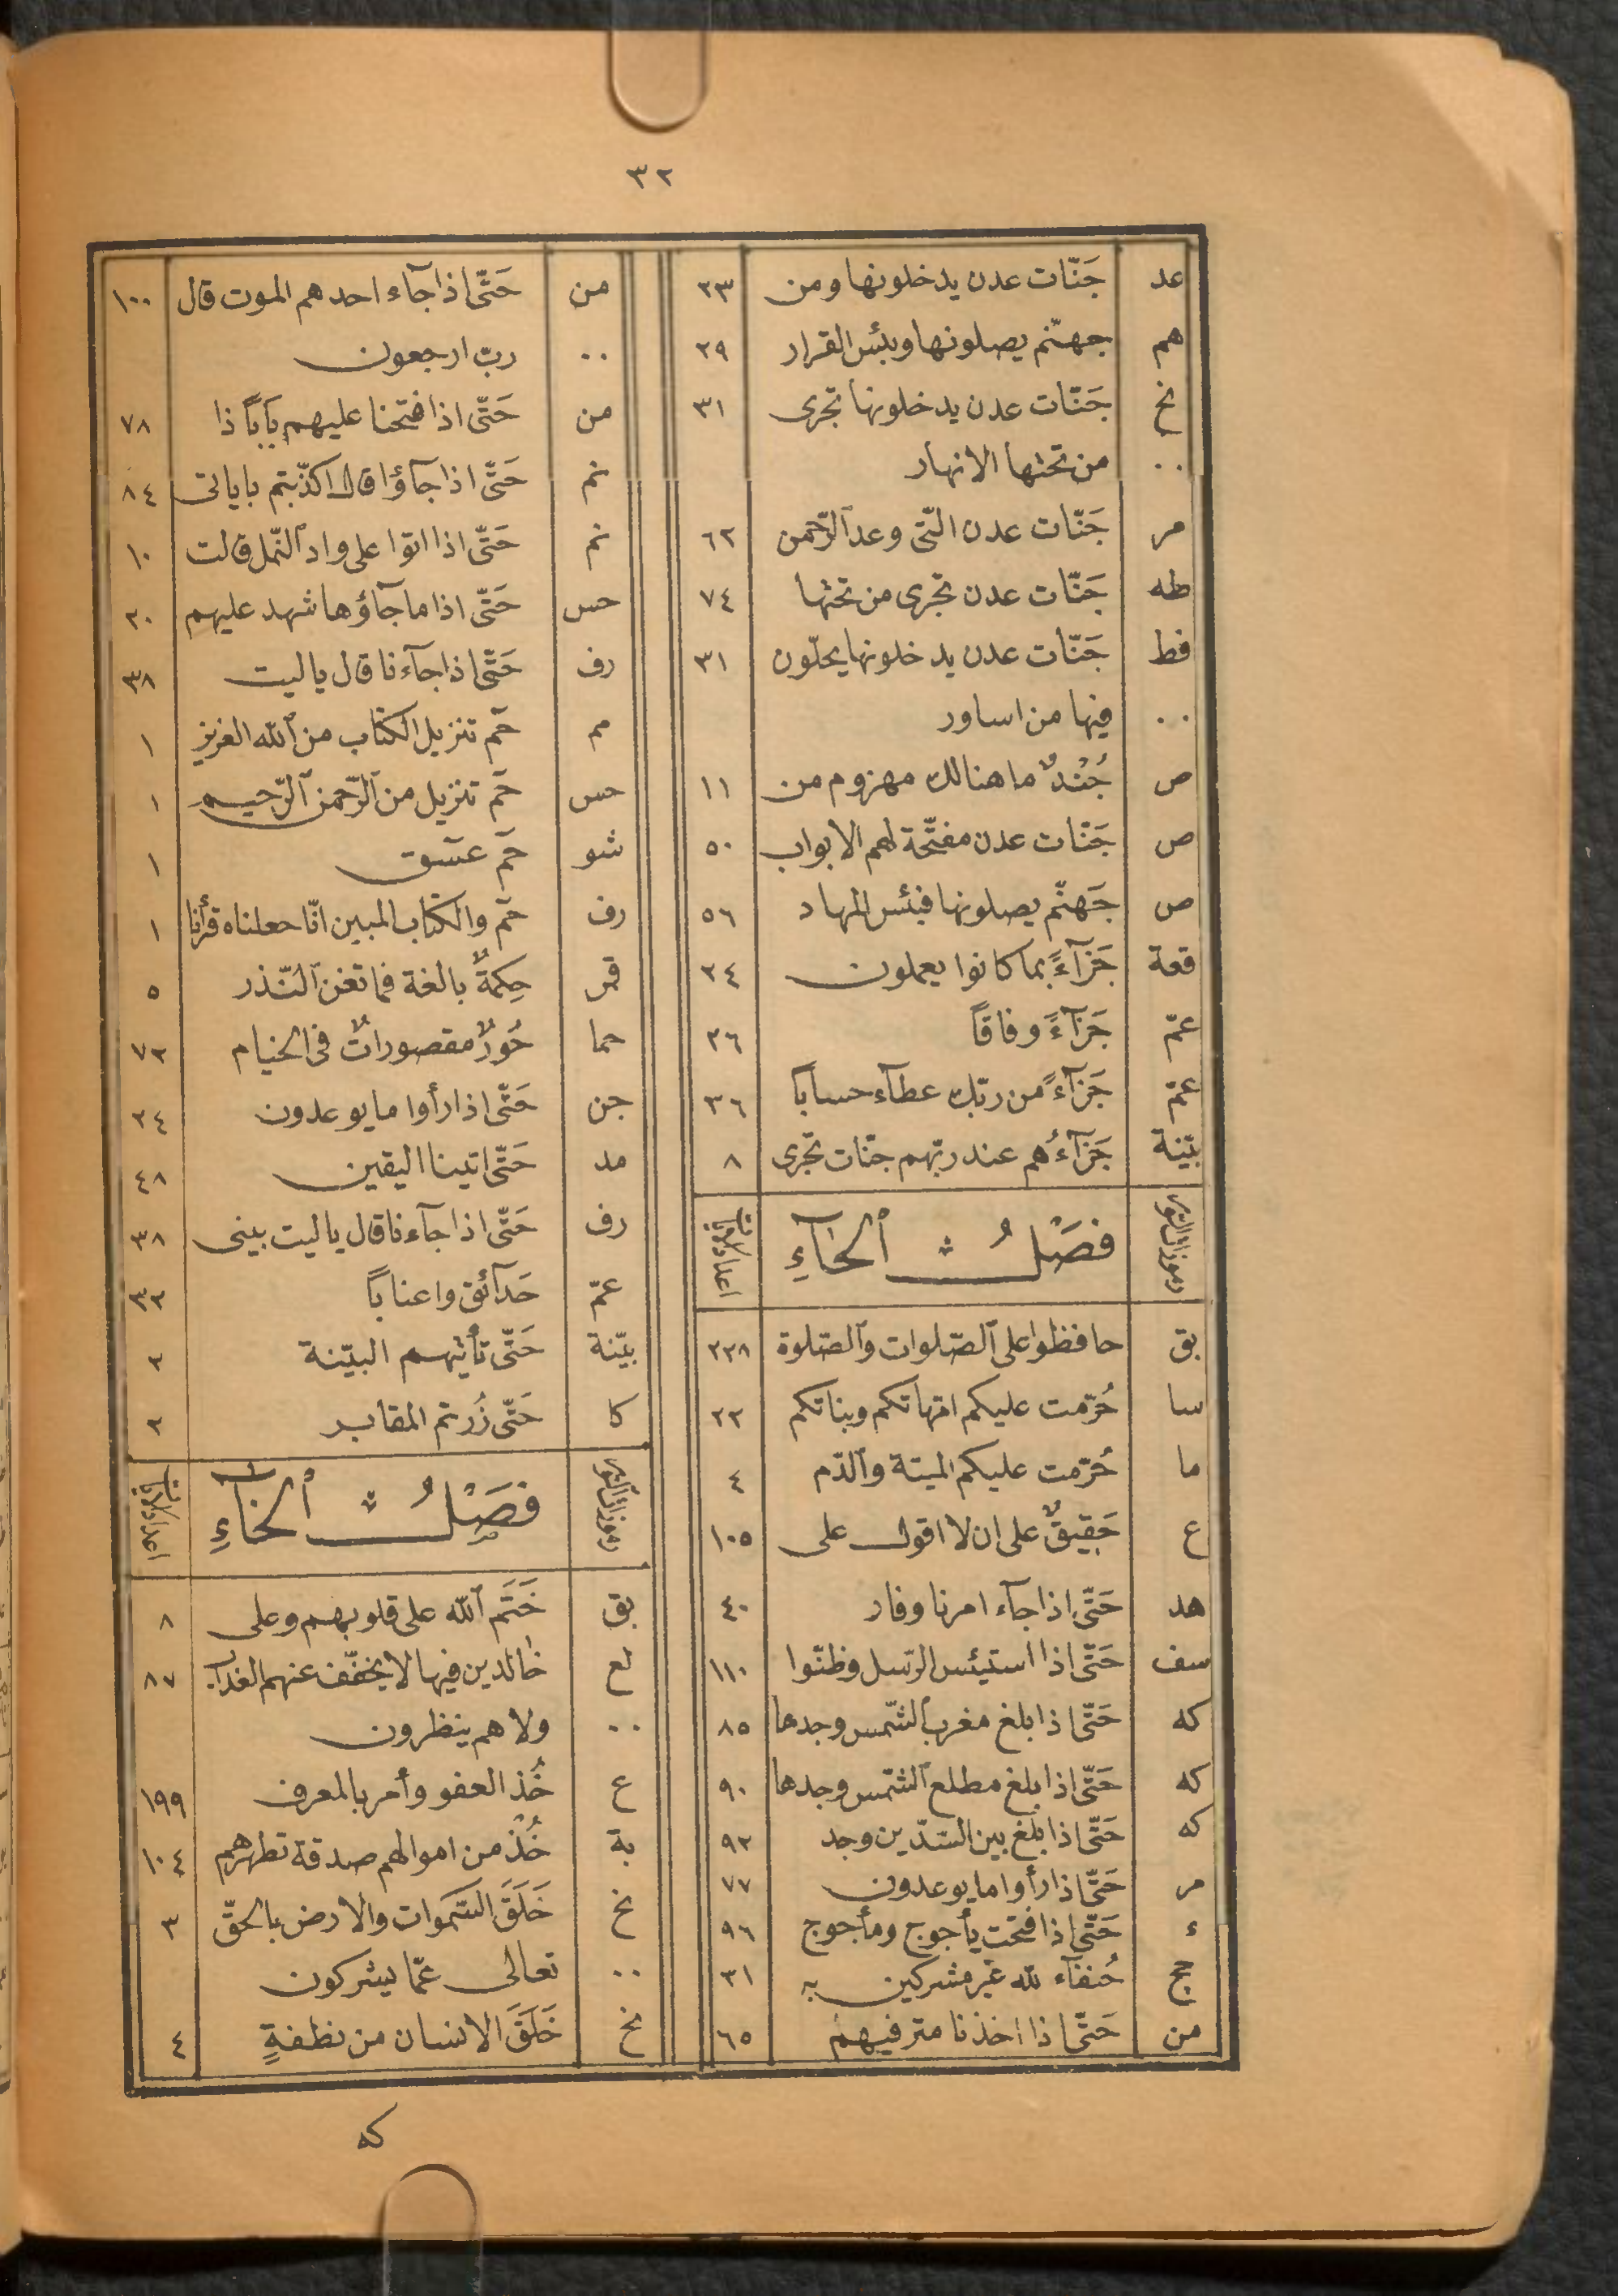 ٣٢
عد جَنّات عدن يدخلونها ومن ٢٣
هم جهنّم يصلونها وبئس القرار ٢٩
نح جَنّات عدن يدخلونها تجرى ٣١
٠٠ من تحتها الانهار
مر جَنّات عدن الّتى وعد ٱلرّحمن ٦٢
طه جَنّات عدن تجرى من تحتها ٧٤
فط جَنّات عدن يدخلونها يحلّون ٣١
٠٠ فيها من اساور
ص جُنْدٌ ما هنالك مهزوم من ١١
ص جَنّات عدن مفتّحة لهم الابواب ٥٠
ص جَهنّم يصلونها فبئس المهاد ٥٦
قعة جَزَآءً بما كانوا يعملون ٢٤
عمّ جَزَآءً وفاقاً ٢٦
عمّ جَزَآءً من ربّك عطآء حسابا ٣٦
بيّنة جَزَآءُهم عند ربّهم جنّات تجرى ٨
رموزات السّور فَصْلُ ٱلْحَآءِ اعداد الايات
بق حافظوا على ٱلصّلوات وٱلصّلوة ٢٣٨
سا حُرّمت عليكم امّهاتكم وبناتكم ٢٢
ما حُرّمت عليكم الميتة وٱلدّم ٤
ع حَقِيقٌ على ان لا اقول على ١٠٥
هد حَتّى اذا جآء امرنا وفار ٤٠
سف حَتّى اذا استيئس الرّسل وظنّوا ١١٠
كه حَتّى اذا بلغ مغرب ٱلشّمس وجدها ٨٥
كه حَتّى اذا بلغ مطلع ٱلشّمس وجدها ٩٠
كه حَتّى اذا بلغ بين السّدّين وجد ٩٢
مر حَتّى اذا رأوا ما يوعدون ٧٧
ء حَتّى اذا فتحت يأجوج ومأجوج ٩٦
حج حُنفآء لله غير مشركين به ٣١
من حَتّى اذا اخذنا مترفيهم ٦٥
من حَتّى اذا جآء احدهم الموت قال ١٠٠
٠٠ ربّ ارجعون
من حَتّى اذا فتحنا عليهم بَاباً ذا ٧٨
نم حَتّى اذا جآؤا قال اكذّبتم باياتى ٨٤
نم حَتّى اذا اتوا على واد ٱلنّمل قالت ١٠
حس حَتّى اذا ما جآؤها شهد عليهم ٢٠
رف حَتّى اذا جآءنا قال ياليت ٣٨
مم حٓم تنزيل الكتاب من ٱلله العزيز ١
حس حٓم تنزيل من ٱلرّحمن ٱلرّحيم ١
شو حٓم عٓسٓق ١
رف حٓم والكتاب المبين انّا جعلناه قرأنا ١
قمر حِكمةٌ بالغة فما تغن ٱلنّذر ٥
حما حُورٌ مقصوراتٌ فى الخيام ٧٢
جن حَتّى اذا رأوا ما يوعدون ٢٤
مد حَتّى اتينا اليقين ٤٨
رف حَتّى اذا جآءنا قال ياليت بينى ٣٨
عمّ حَدآئق واعناباً ٣٢
بيّنة حَتّى تأتيهم البيّنة ٢
كا حَتّى زُرتم المقابر ٢
رموزات السّور فَصْلُ ٱلْخَآءِ اعداد الايات
بق خَتَم ٱلله على قلوبهم وعلى ٨
لع خالدين فيها لا يخفّف عنهم العذاب ٨٧
٠٠ ولا هم ينظرون
ع خُذ العفو وأمر بالمعرف ١٩٩
بة خُذْ من اموالهم صدقة تطهرهم ١٠٤
نح خَلَقَ السّموات والارض بالحقّ ٣
٠٠ تعالى عمّا يشركون
نح خَلَقَ الانسان من نطفةٍ ٤
كه